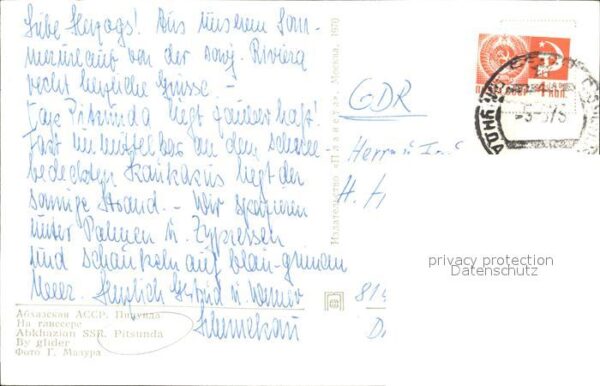 Liebe Herzogs! Aus unserem Som-
merurlaub von der sowj. Riviera
recht herzliche Grüsse –
Pitsunda liegt zauberhaft!
Fast unmittelbar an dem schnee-
bedeckten Kaukasus liegt der
sonnige Strand. – Wir spazieren
unter Palmen u. Zypressen
und schaukeln auf blau-grünem
Meer. Herzlich u. Werner
Абхазская АССР. Пицунда
На глиссере
Abkhazian SSR. Pitsunda
By glider
Фото Г. Мазура
Издательство «Планета». Москва, 1970
GDR
Herrn u.
H.
privacy protection
Datenschutz